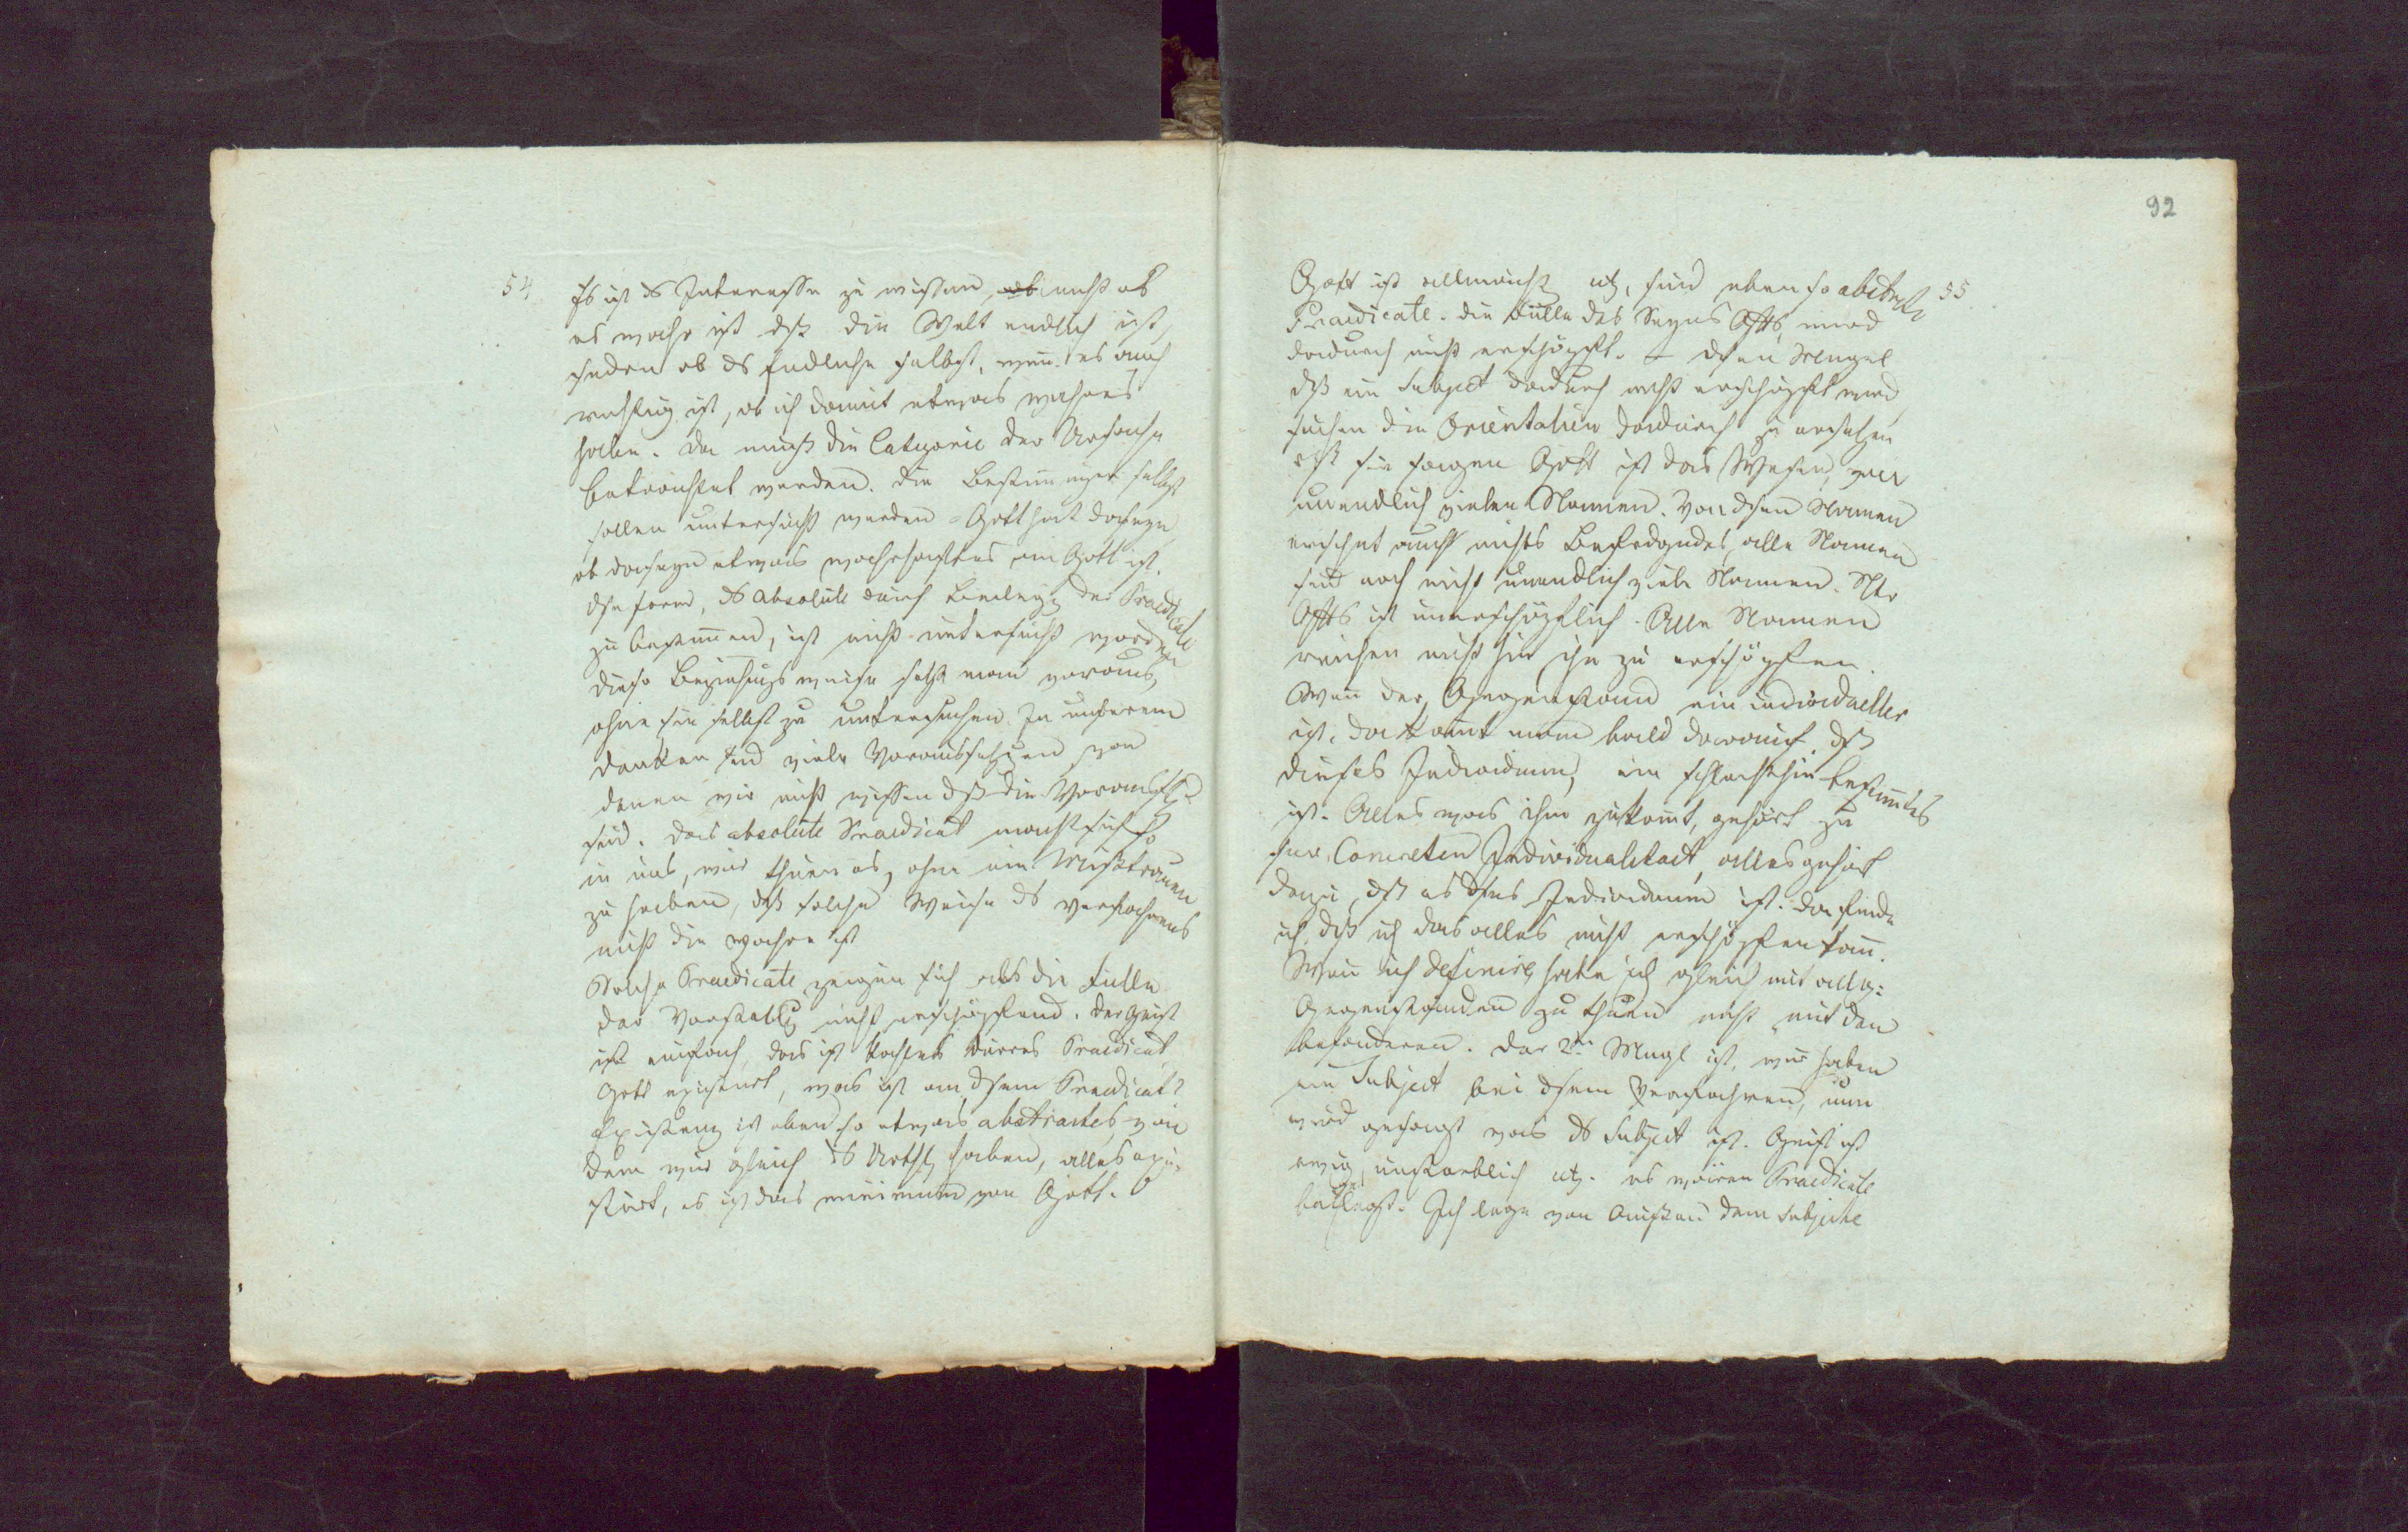 54
Es ist ds Interesse zu wissen, ob nicht ob
es wahr ist dß die Welt endlich ist,
sondern ob ds Endliche selbst, wenn es auch
richtig ist, ob ich damit etwas wahres
habe. Da muß die Categorie der Ursache
betrachtet werden. Die Bestimmungen selbst
sollen untersucht werden - Gott hat daseyn
ob daseyn etwas wahrhaftes in Gott ist.
Dse Form, ds Absolute durch Beilegg der Praedicate
zu bestimmen, ist nicht untersucht worden
diese Beziehungsweise setzt man voraus,
ohne sie selbst zu untersuchen. In unserem
Denken sind viele Voraussetzungen von
denen wir nicht wissen dß die Voraussetzg
sind. Das absolute Praedicat macht sich so
in uns, wir thuen es, ohne ein Mißtrauen
zu haben, dß solche Weise ds Verfahrens
nicht die wahre ist
Solche Praedicate zeigen sich als die Fülle
der Vorstellg nicht erschöpfend. Der Geist
ist einfach, das ist dürres Praedicat
Gott existirt, was ist an dsem Praedicat?
Existenz ist eben so etwas abstractes, von
dem wir gleich ds Urthl haben, alles exi-
stirt, es ist das minimum von Gott.
92
55
Gott ist allmächtig etc, sind eben so abstracte
Praedicate. Die Fülle des Seyns Gotts wird
dadurch nicht erschöpft. - Dsen Mangel
dß ein Subject dadurch nicht erschöpft wird,
suchen die Orientalen dadurch zu ersetzen
dß sie sagen Gott ist das Wesen, von
unendlich vielen Namen. Von dsen Namen
erscheint auch nichts Befriedigendes, alle Namen
sind noch nicht unendlich viele Namen. Ntr
Gotts ist unerschöpflich. Alle Namen
reichen nicht hin ihn zu erschöpfen.
Wenn der Gegenstand ein individueller
ist, da kommt man bald darauf, dß
dieses Individuum, ein schlechthin bestimmtes
ist. Alles was ihm zukommt, gehört zu
sr Concreten Individualitaet, alles gehört
dazu, dß es dses Individuum ist. Da finde
ich, dß ich das alles nicht erschöpfen kann.
Wenn ich definire habe ich gleich mit allg:
Gegenständen zu thuen nicht mit den
besonderen. Der 2te Mangl ist, wir haben
ein Subject bei dsem Verfahren, nun
wird gesagt was ds Subject ist. Geist ist
ewig, unsterblich etc. es wären Praedicate
beigelegt. Ich lege von Außen dem Subjecte